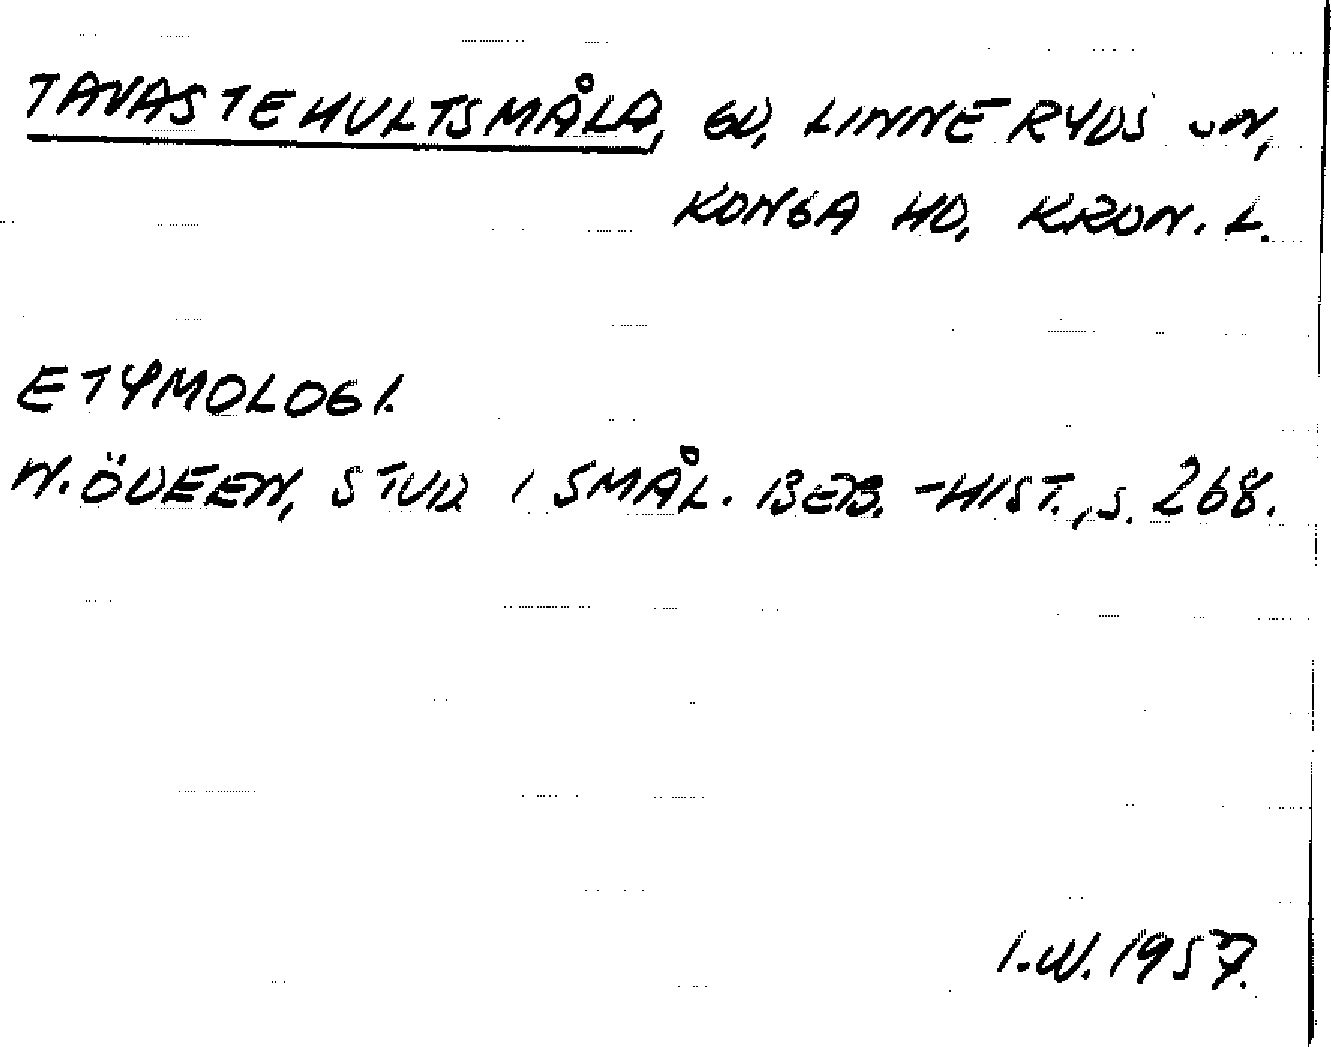 TAVASTEHULTSMÅLA, GD, LINNERYDS SN,
KONGA HD, KRON. L.
ETYMOLOGI.
N. ÖDEEN, STUD I SMÅL. BEB. -HIST., S. 268.
I.W. 1957.